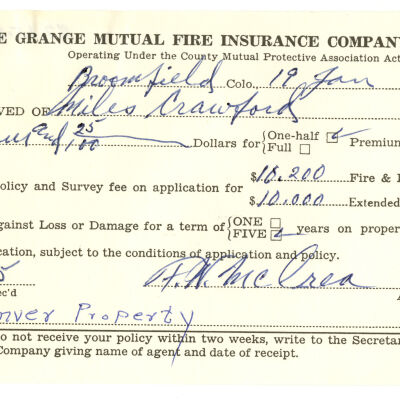 E GRANGE MUTUAL FIRE INSURANCE COMPANY
Operating Under the County Mutual Protective Association Act
Broomfield Colo. 19 Jan
VED OF Miles Crawford
and 25/100 Dollars for {One-half ☑ Premium
{Full ☐
olicy and Survey fee on application for $10.200 Fire &
$10.000 Extended
gainst Loss or Damage for a term of {ONE ☐ years on proper
{FIVE ☑
cation, subject to the conditions of application and policy.
5 A. W. McCrea
c'd
nver Property
o not receive your policy within two weeks, write to the Secreta
Company giving name of agent and date of receipt.